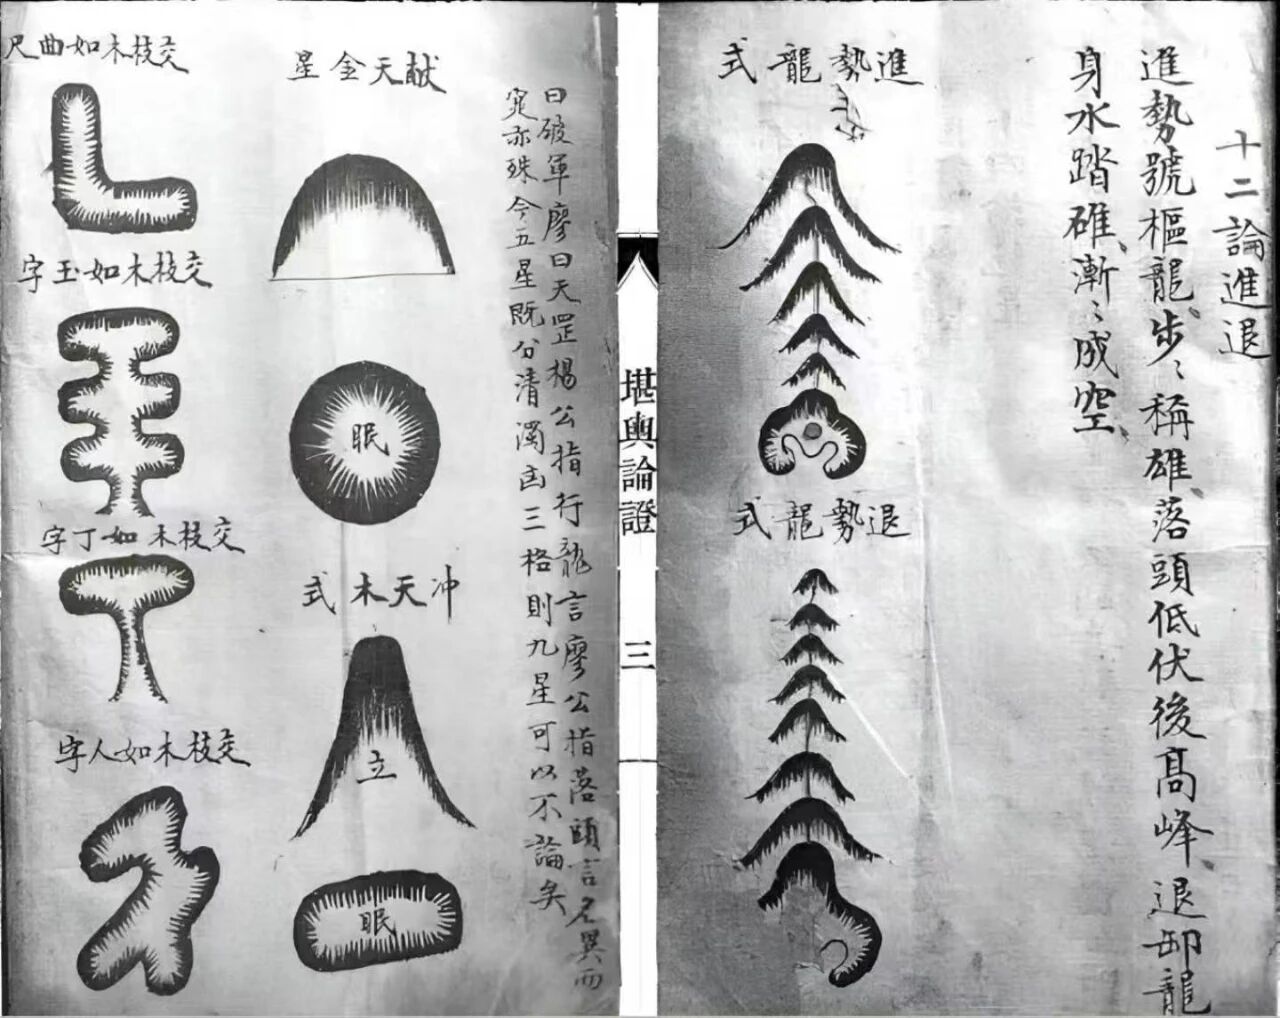 十二論進退
進勢號樞龍、步〻稱雄、落頭低伏後高峰、退卸龍
身水踏碓、漸〻成空、
進勢龍式
退勢龍式
堪輿論證
三
曰破軍廖曰天罡楊公指行龍言廖公指落頭言名異而
究亦殊今五星既分清濁凶三格則九星可以不論矣
献天金星
眠
冲天木式
立
眠
交枝木如曲尺
交枝木如玉字
交枝木如丁字
交枝木如人字